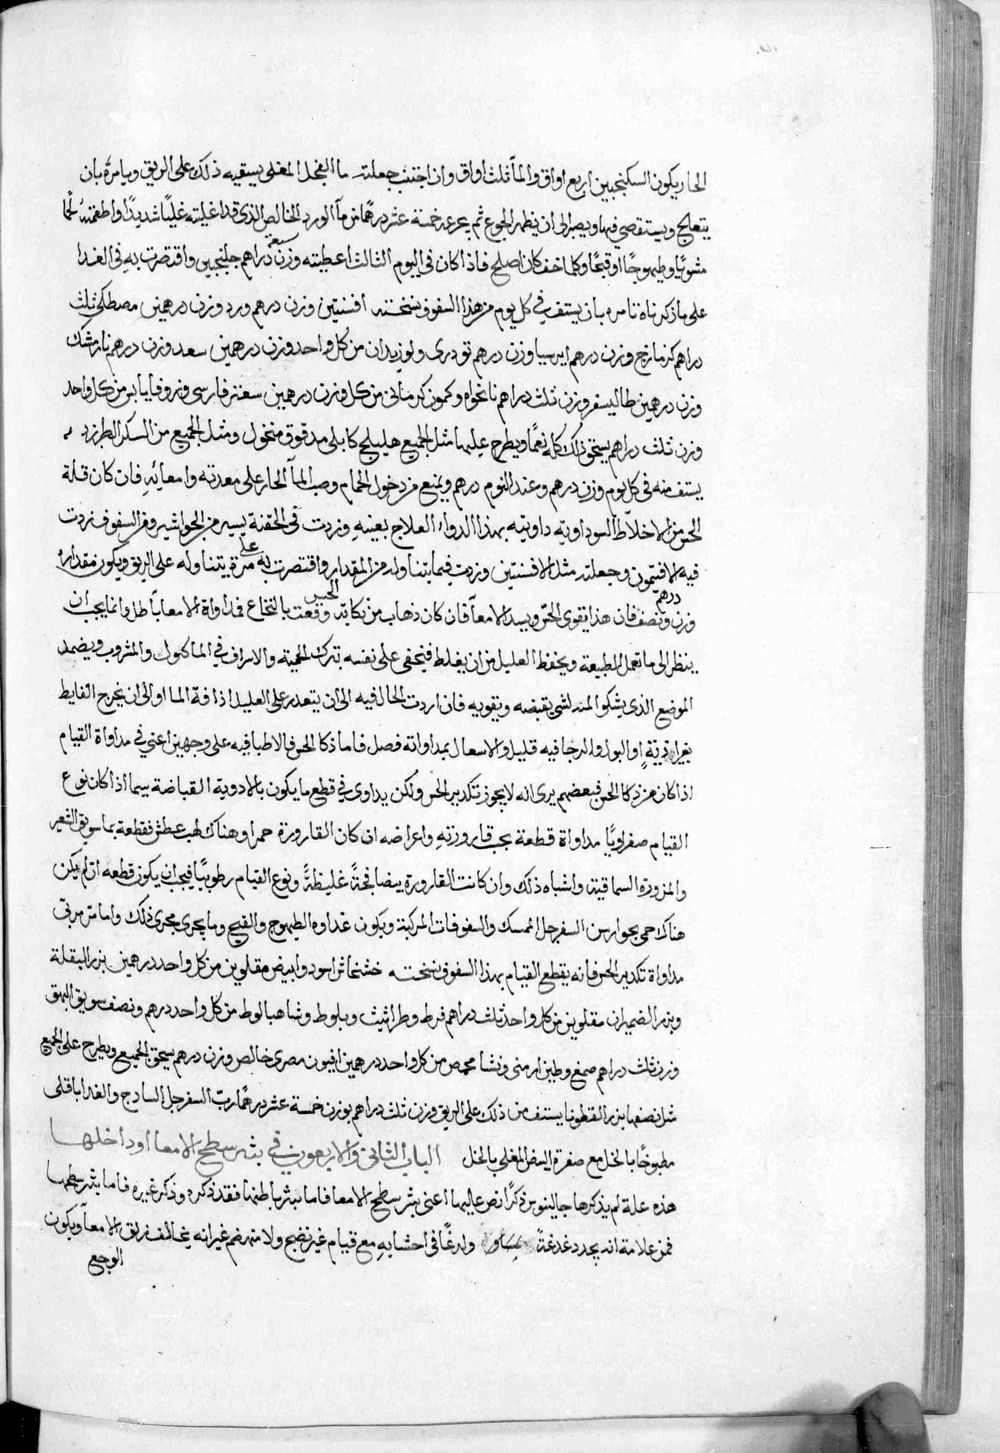 الحار يكون السكنجبين اربع اواق والمآ ثلث اواق وان اجتنب جعلته ما الفجل المغلى يسقيه ذلك على الريق ويامره بان
يتعالج ويستقصي فيها ويصبر الى ان يظهر الجوع ثم يجرعه خمسة عشر درهما من مآ الورد الخالص الذي قد اغليته غليًا شديدًا واطعمته لحمًا
مشويًا وطيهوجًا او قبجًا وكلما خف كان اصلح فاذا كان في اليوم الثالث اعطيته وزن دراهم جلنجبين واقتصرت به في الغدا
على ما ذكرناه تامره بان يستف في كل يوم من هذا السفوف نسخته افسنتين وزن درهم ورد وزن درهمين مصطكى ثلث
دراهم كزمازج وزن درهم ايرسا وزن درهم تودري ولوزيدان من كل واحد وزن درهمين سعد وزن درهم نارمشك
وزن درهمين طاليسفر وزن ثلث دراهم نانخواه وكمون كرماني من كل وزن درهمين سعتر فارسي وزوفا يابس من كل واحد
وزن ثلث دراهم يسحق ذلك كله نعمًا ويطرح عليها مثل الجميع هليلج كابلى مدقوق منخول ومثل الجميع من السكر الطبرزد
يستف منه في كل يوم وزن درهم وعند النوم درهم ويمنع من دخول الحمام وصب المآ الحار على معدته وامعائه فان كان قلة
الحس من الاخلاط السوداوية داويته بهذا الدواء العلاج بعينه وزدت في الحقنة يسير من الجواشير وفي السفوف زدت
فيه الافتيمون وجعلته مثل الافسنتين وزدت فيما يتناوله من المقدار واقتصرت به على مرة يتناوله على الريق ويكون مقداره
وزن درهم ونصف فان هذا يقوى الحس ويسد الامعآ فان كان ذهاب الحس من نكاية وقعت بالنخاع فمداواة الامعا باطل وانما يجب ان
ينظر الى ما تعمل الطبيعة ويحفظ العليل من ان يغلط فيجنى على نفسه بترك الحمية والاسراف في الماكول والمشروب ويضمد
الموضع الذي يشكوا المه لشى يقبضه ويقويه فان اردت الحال فيه الى ان يتعذر على العليل اذا فة الما او الى ان يخرج الغايط
بغير اذيةٍ او البول والرجا فيه قليل والاسعال بمداواته فصل فاما ذكا الحس فالاطبا فيه على وجهين اعني في مداواة القيام
اذا كان من ذكا الحس فبعضهم يرى انه لا يجوز تكدير الحس ولكن يداوى في قطع ما يكون بالادوية القباضة سيما اذا كان نوع
القيام صفراويًا مداواة قطعة يجب قارورته واعراضه ان كان القارورة حمرا وهناك لهب عطش فقطعة بماسويق الشعير
والمزورة السماقية واشباه ذلك وان كانت القارورة بيضا فجةً غليظةً ونوع القيام رطوبيًا فيجب ان يكون قطعه ان لم يكن
هناك حمى بجوارس السفرجل الممسك والسفوفات المركبة ويكون غداوه الطيهوج والقبج وما يجرى مجرى ذلك واما من يرتى
مداواة تكدير الحس فانه يقطع القيام بهذا السفوف نسخته خشخاش اسود وابيض مقلوين من كل واحد درهمين بزر البقلة
وبزر الضميران مقلوين من كل واحد ثلث دراهم قرط وطراثيث وبلوط وشاهبلوط من كل واحد درهم ونصف سويق النبق
وزن ثلث دراهم صمغ وطين ارمنى ونشا محمص من كل واحد درهمين افيون مصرى خالص وزن درهم يسحق الجميع ويطرح على الجميع
مثل نصفها بزر القطونا يستف من ذلك على الريق وزن ثلث دراهم بوزن خمسة عشر درهما رب السفرجل الساذج والغدا باقلى
مطبوخًا بالخل مع صفرة البيض المغلى بالخل الباب الثانى والاربعون في بثر سطح الامعا او داخلها
هذه علة لم يذكرها جالينوس ذكرًا نص عليها اعنى بثر سطح الامعا فاما بثر باطنها فقد ذكره وذكر غيره فاما بثر سطحها
فمن علامة انه يجد دغدغةً ولدغًا في احشايه مع قيام غير نضج ولا منهضم غير انه يخالف زلق الامعآ ويكون
الوجع